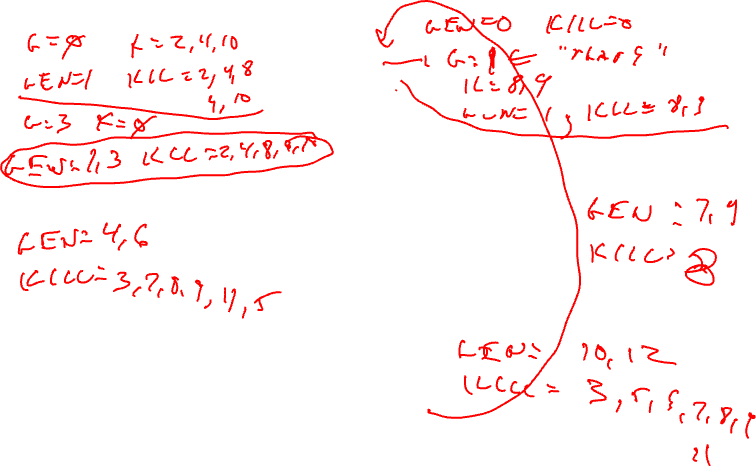 G=∅ K=2,4,10
GEN=1 KILL=2,4,8
9,10
G=3 K=∅
GEN=1,3 KILL=2,4,8,9,10
GEN=4,6
KILL=3,7,8,9,11,5
GEN=0 KILL=0
G=1
K=8,9
GEN=1, KILL=8,9
GEN=7,9
KILL=8
GEN=10,12
KILL=3,5,
7,8,9
11